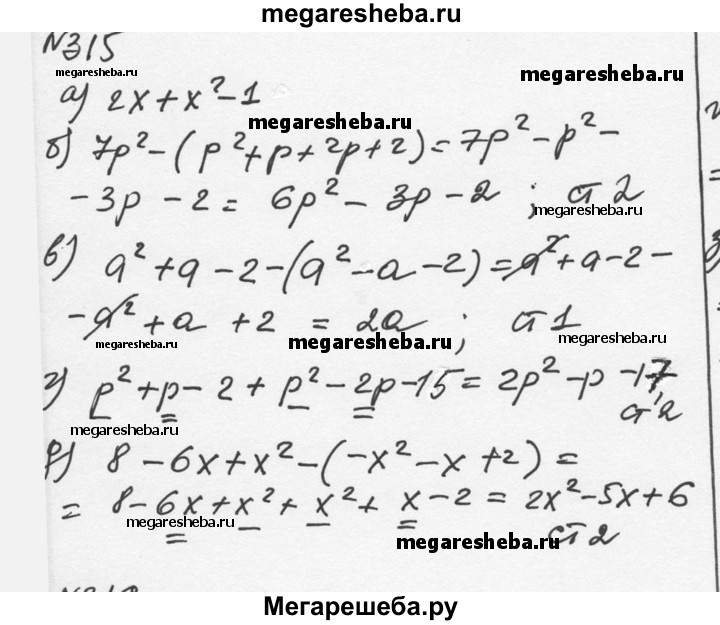 megaresheba.ru
№315
megaresheba.ru
megaresheba.ru
а) 2x + x² - 1
megaresheba.ru
б) 7p² - (p² + p + 2p + 2) = 7p² - p² -
- 3p - 2 = 6p² - 3p - 2 ; ст 2
megaresheba.ru
в) a² + a - 2 - (a² - a - 2) = a² + a - 2 -
- a² + a + 2 = 2a ; ст 1
megaresheba.ru
megaresheba.ru
megaresheba.ru
г) p² + p - 2 + p² - 2p - 15 = 2p² - p - 17
ст 2
megaresheba.ru
megaresheba.ru
д) 8 - 6x + x² - (-x² - x + 2) =
= 8 - 6x + x² + x² + x - 2 = 2x² - 5x + 6
megaresheba.ru
ст 2
megaresheba.ru
Мегарешеба.ру